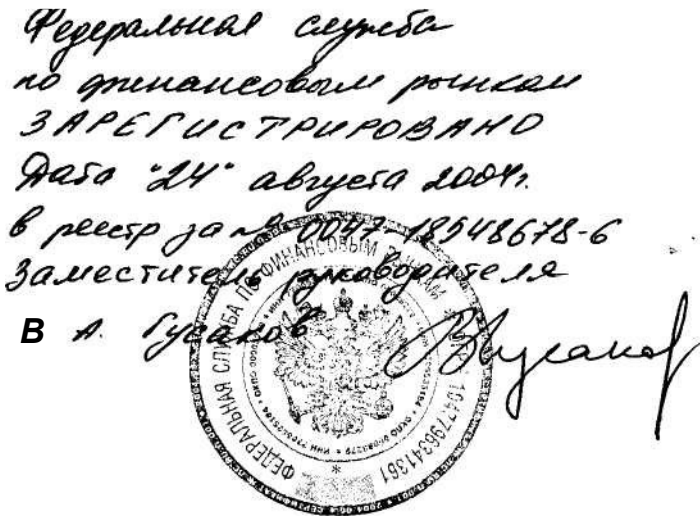 Федеральная служба
по финансовым рынкам
ЗАРЕГИСТРИРОВАНО
Дата "24" августа 2004г.
в реестр за № 0047-18548678-6
Заместитель руководителя
В А. Гусаков
ФЕДЕРАЛЬНАЯ СЛУЖБА ПО ФИНАНСОВЫМ РЫНКАМ
1047796341361